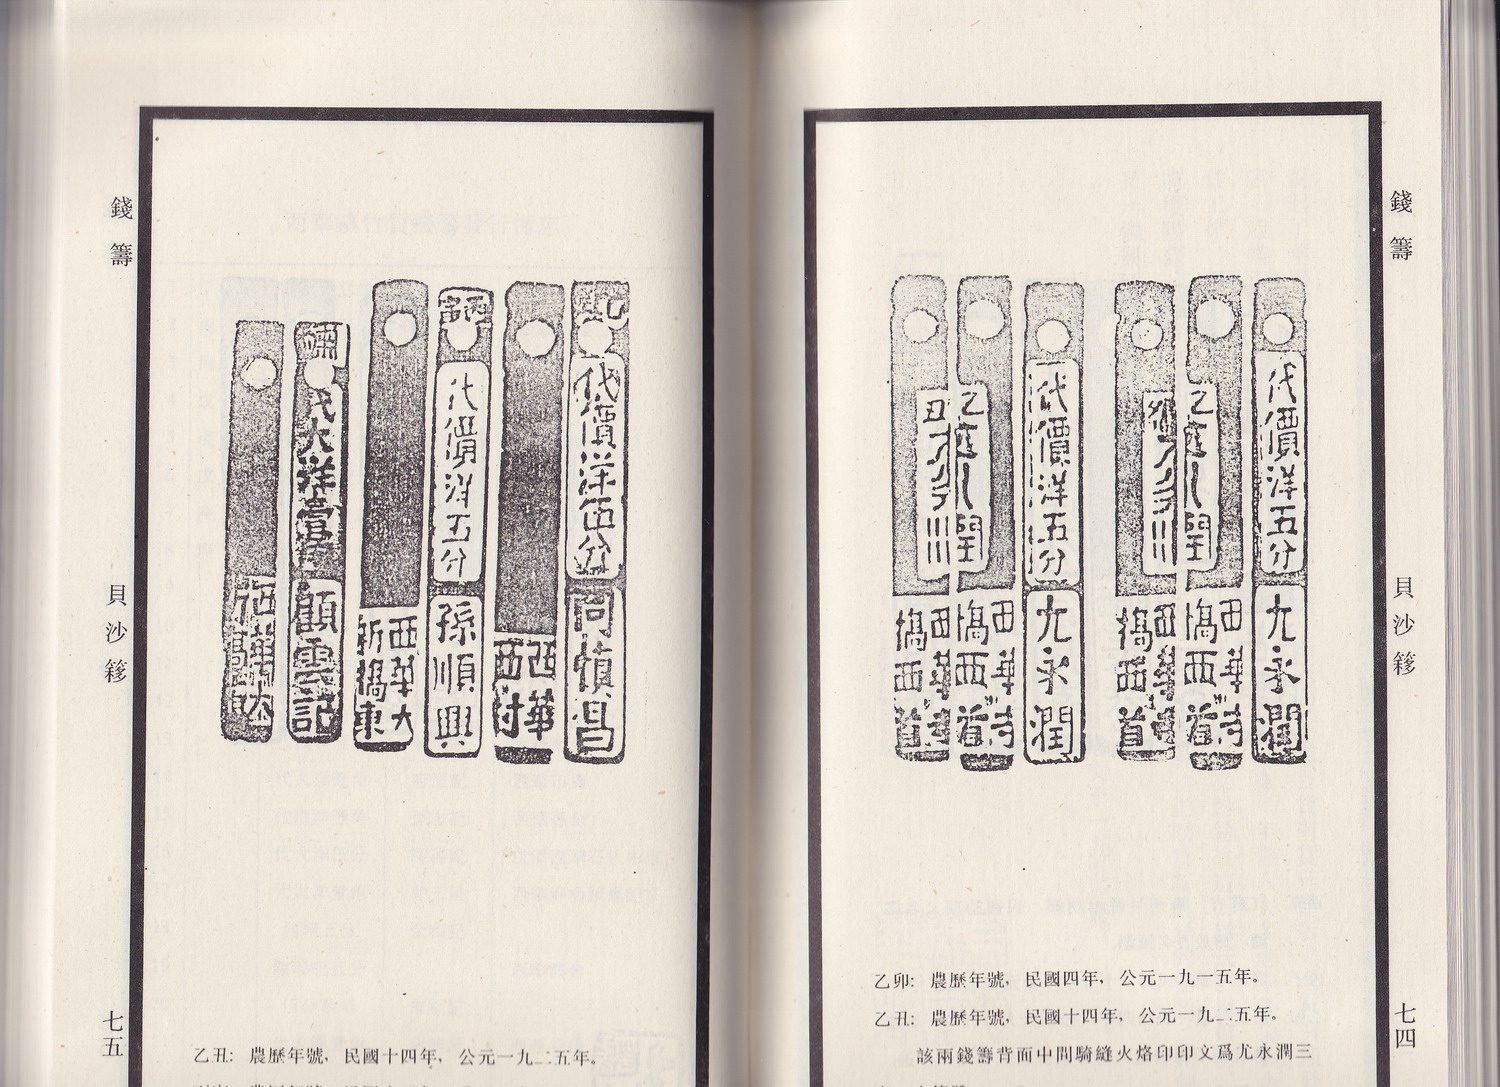 錢籌
貝沙簃
七四
代價洋五分
尤永潤
西華
橋西首
代價洋五分
尤永潤
西華
橋西首
乙卯：農歷年號，民國四年，公元一九一五年。
乙丑：農歷年號，民國十四年，公元一九二五年。
該兩錢籌背面中間騎縫火烙印印文爲尤永潤三
代價洋伍分
同慎昌
西華
西村
代價洋五分
孫順興
西華大
新橋東
代大洋壹分
顧雲記
乙丑：農歷年號，民國十四年，公元一九二五年。
錢籌
貝沙簃
七五